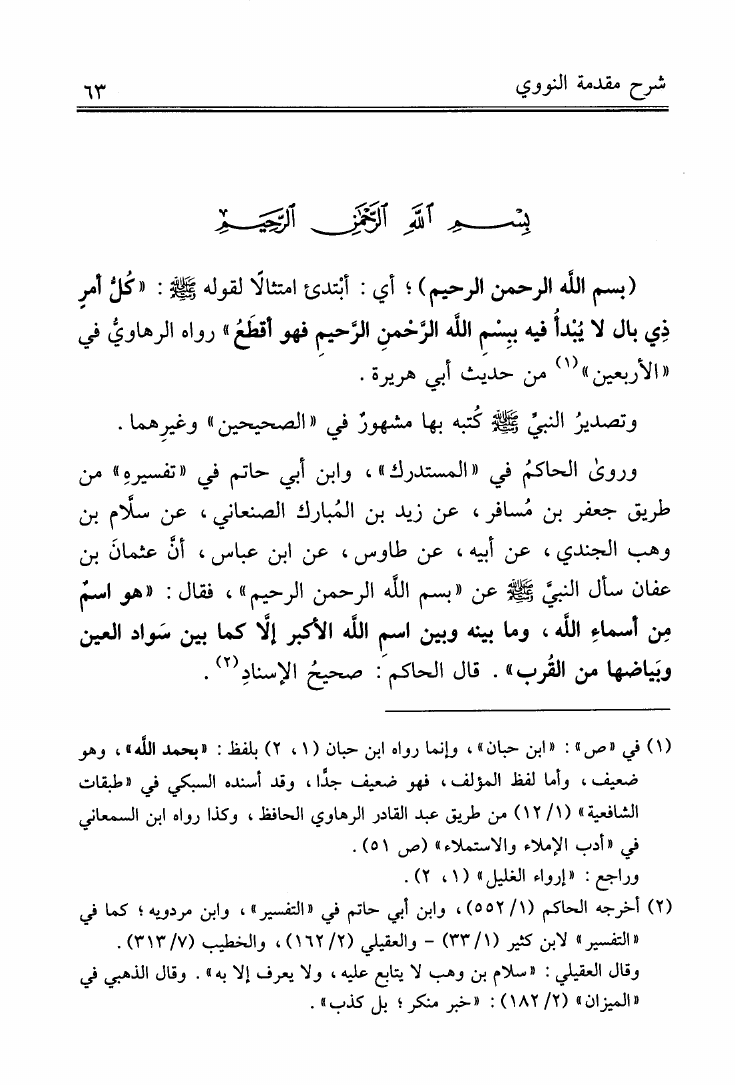 شرح مقدمة النووي
٦٣
بِسْمِ ٱللَّهِ ٱلرَّحْمَٰنِ ٱلرَّحِيمِ
(بسم اللَّه الرحمن الرحيم)؛ أي: أبْتدئ امتثالًا لقوله ﷺ: «كُلُّ أمرٍ
ذِي بال لا يُبْدأُ فيه بِبِسْمِ اللَّه الرَّحْمنِ الرَّحيمِ فهو أقطَعُ» رواه الرهاويُّ في
«الأربعين»(١) من حديث أبي هريرة.
وتصديرُ النبيِّ ﷺ كُتبه بها مشهورٌ في «الصحيحين» وغيرِهما.
وروىٰ الحاكمُ في «المستدرك»، وابن أبي حاتم في «تفسيرهِ» من
طريق جعفر بن مُسافر، عن زيد بن المُبارك الصنعاني، عن سلَّام بن
وهب الجندي، عن أبيه، عن طاوس، عن ابن عباس، أنَّ عثمانَ بن
عفان سأل النبيَّ ﷺ عن «بسم اللَّه الرحمن الرحيم»، فقال: «هو اسمٌ
مِن أسماءِ اللَّه، وما بينه وبين اسمِ اللَّه الأكبر إلَّا كما بين سَواد العين
وبَياضها من القُرب». قال الحاكم: صحيحُ الإسنادِ(٢).
(١) في «ص»: «ابن حبان»، وإنما رواه ابن حبان (١، ٢) بلفظ: «بحمد اللَّه»، وهو
ضعيف، وأما لفظ المؤلف، فهو ضعيف جدًّا، وقد أسنده السبكي في «طبقات
الشافعية» (١/ ١٢) من طريق عبد القادر الرهاوي الحافظ، وكذا رواه ابن السمعاني
في «أدب الإملاء والاستملاء» (ص ٥١).
وراجع: «إرواء الغليل» (١، ٢).
(٢) أخرجه الحاكم (١/ ٥٥٢)، وابن أبي حاتم في «التفسير»، وابن مردويه؛ كما في
«التفسير» لابن كثير (١/ ٣٣) - والعقيلي (٢/ ١٦٢)، والخطيب (٧/ ٣١٣).
وقال العقيلي: «سلام بن وهب لا يتابع عليه، ولا يعرف إلا به». وقال الذهبي في
«الميزان» (٢/ ١٨٢): «خبر منكر؛ بل كذب».